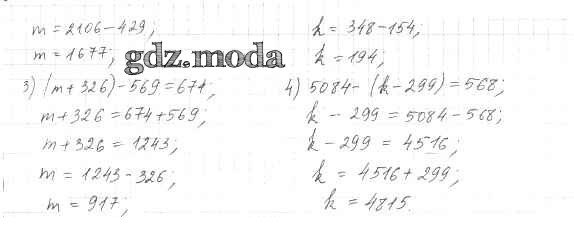 m = 2106 - 429;
m = 1677;
gdz.moda
3) (m + 326) - 569 = 674;
m + 326 = 674 + 569;
m + 326 = 1243;
m = 1243 - 326;
m = 917;
k = 348 - 154;
k = 194;
4) 5084 - (k - 299) = 568;
k - 299 = 5084 - 568;
k - 299 = 4516;
k = 4516 + 299;
k = 4815.